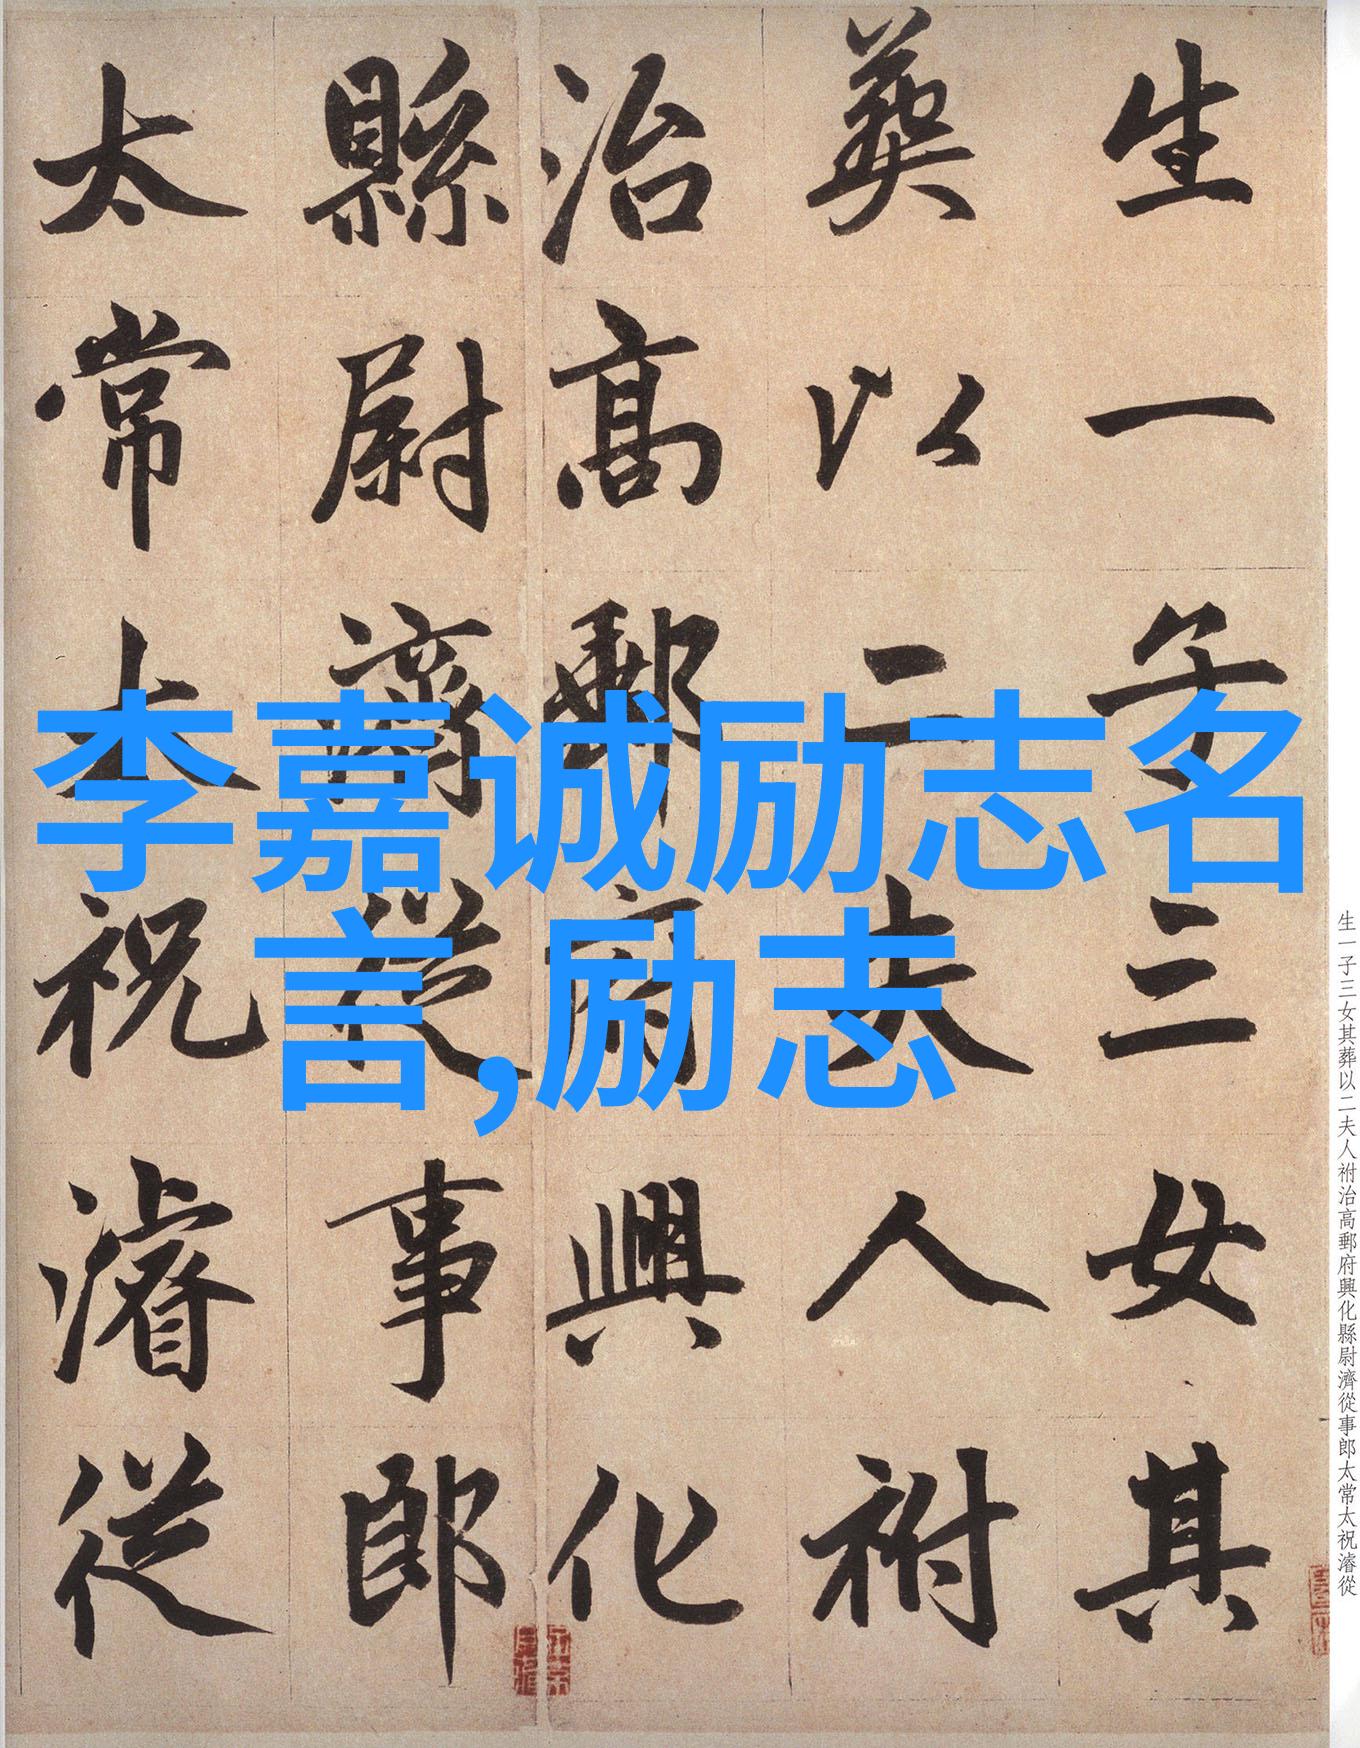 生一子三女其
葬以二夫人祔
治高郵府興化
縣尉濟從事郎
太常太祝濬從
李嘉诚励志名
言,励志
生一子三女其葬以二夫人祔治高郵府興化縣尉濟從事郎太常太祝濬從